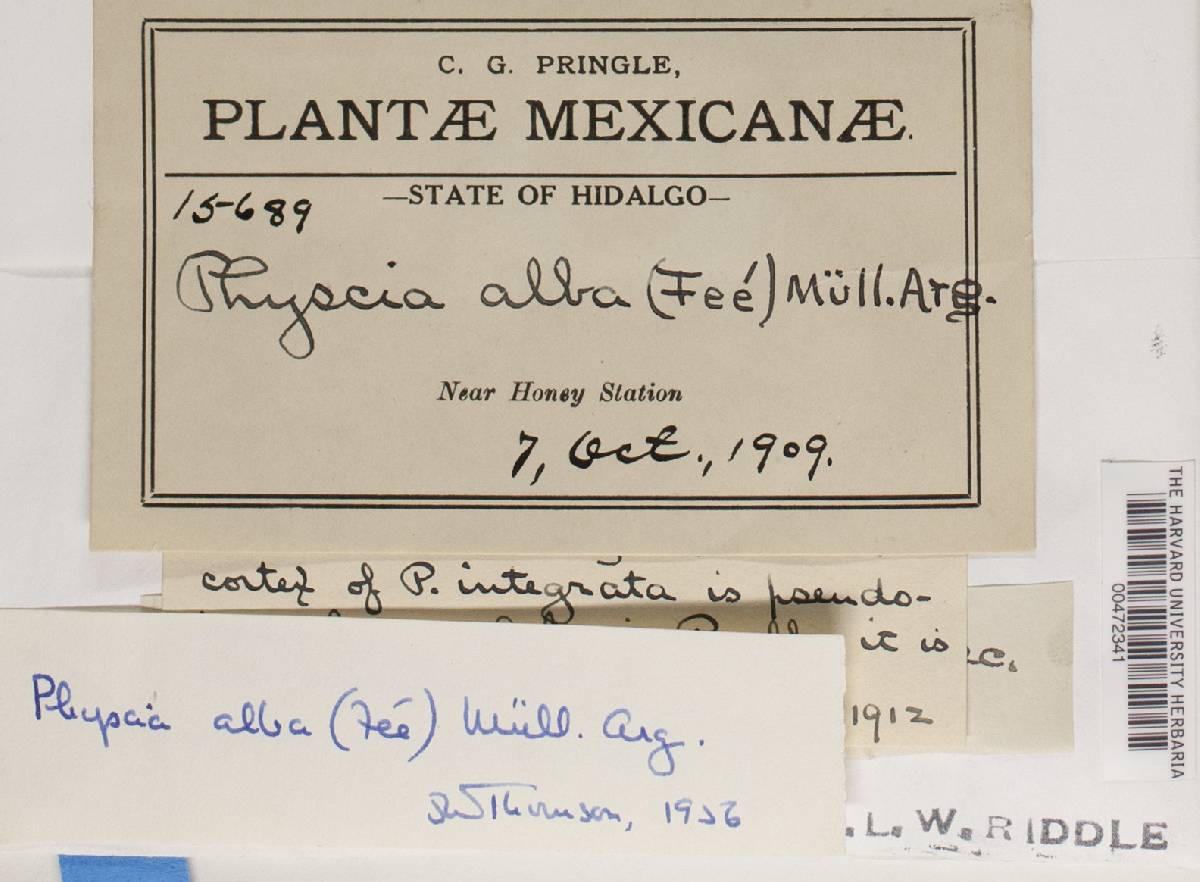 C. G. PRINGLE,
PLANTÆ MEXICANÆ.
15-689 —STATE OF HIDALGO—
Physcia alba (Feé) Müll. Arg.
Near Honey Station
7, Oct., 1909.
cortex of P. integrata is pseudo-
it is
c.
1912
Physcia alba (Feé) Müll. Arg.
JWThomson, 1956
.L.W.RIDDLE
THE HARVARD UNIVERSITY HERBARIA
00472341